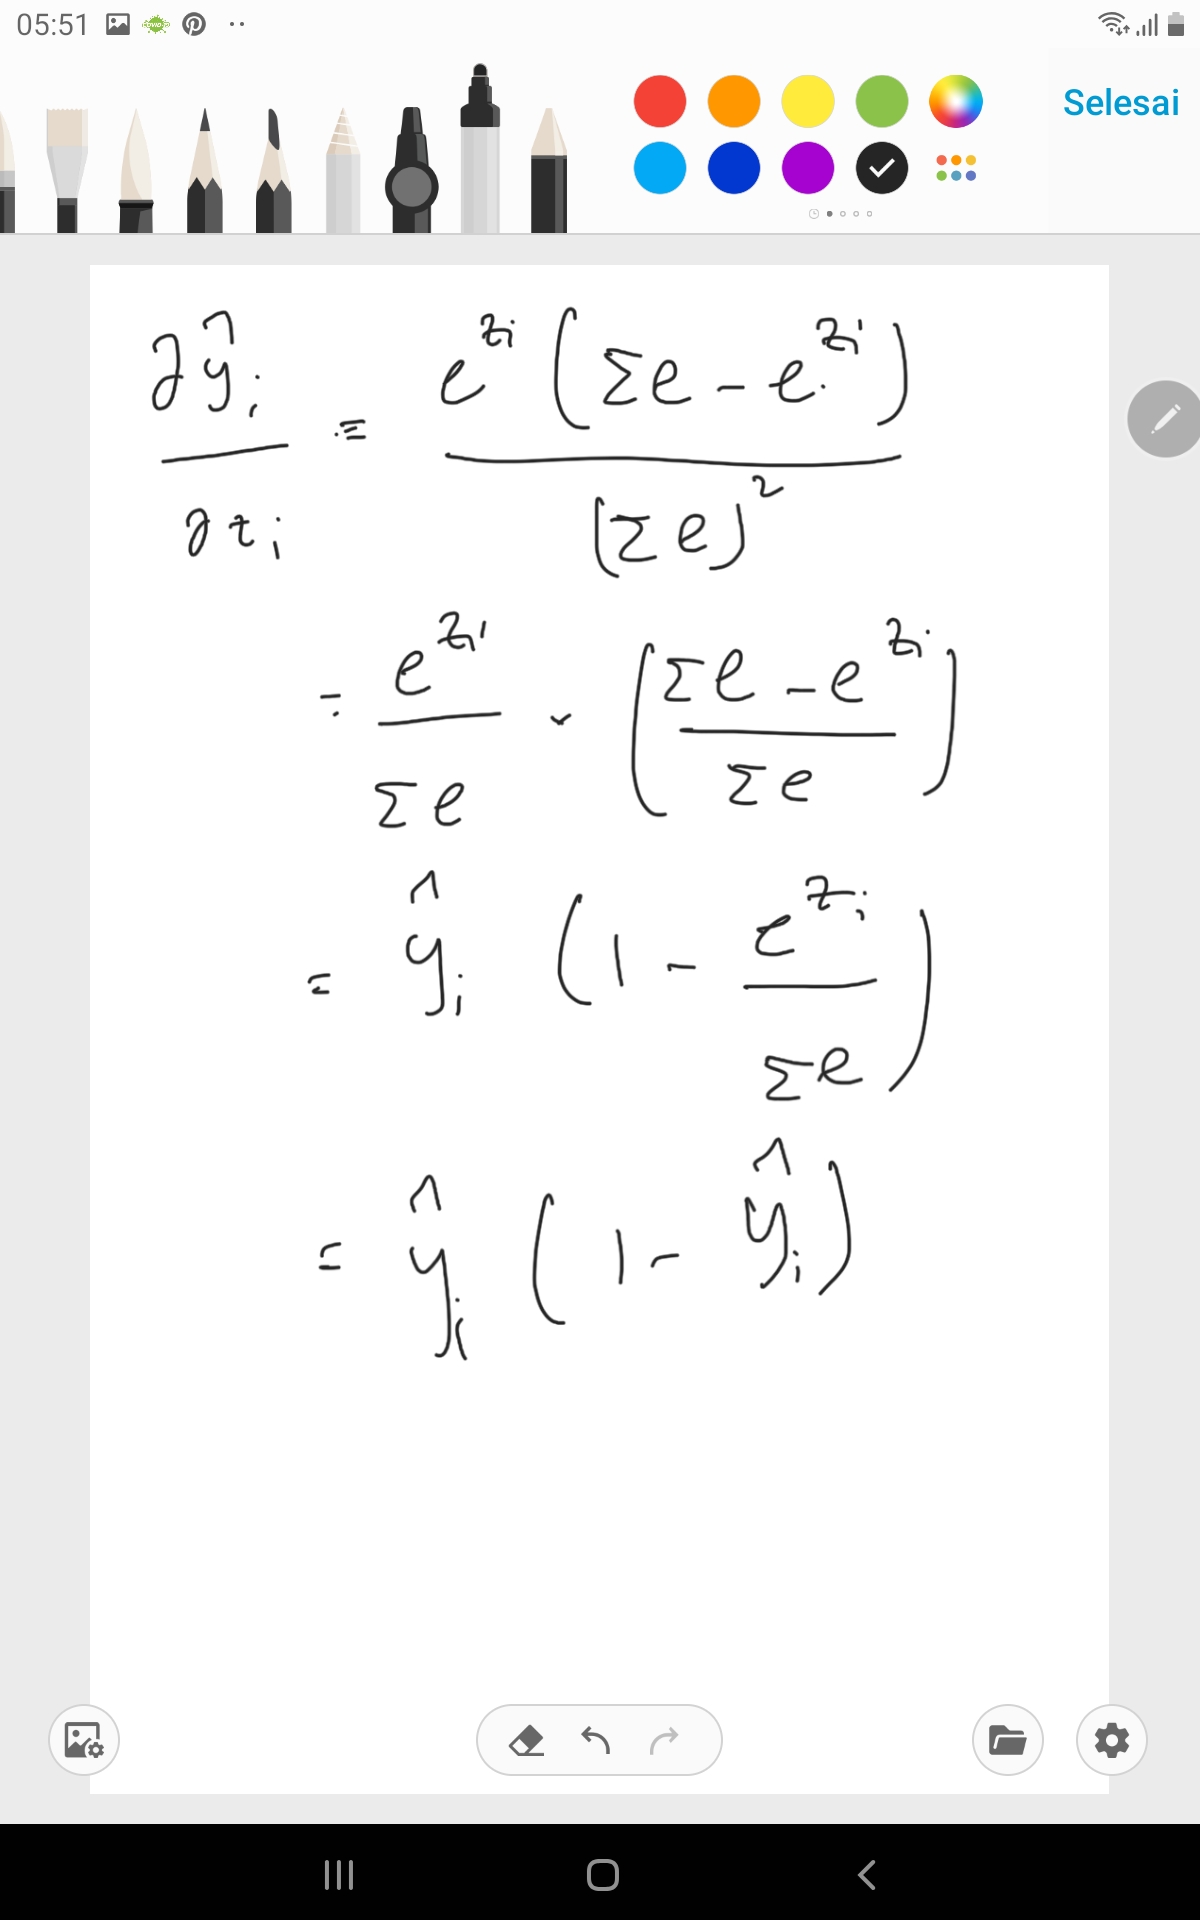 05:51
Selesai
∂ŷᵢ / ∂zᵢ = e^{zᵢ} (Σe - e^{zᵢ}) / (Σe)²
= e^{zᵢ} / Σe · ((Σe - e^{zᵢ}) / Σe)
= ŷᵢ (1 - e^{zᵢ} / Σe)
= ŷᵢ (1 - ŷᵢ)